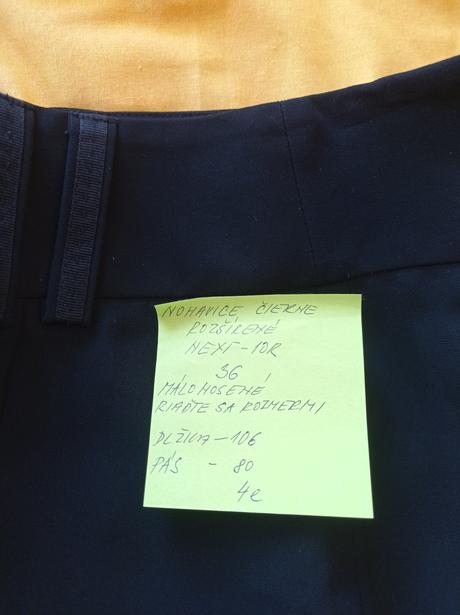 NOHAVICE ČIERNE
ROZŠÍRENÉ
NEXT - 10R
36
MÁLO NOSENÉ
RIAĎTE SA ROZMERMI
DĹŽKA - 106
PÁS - 80
4e